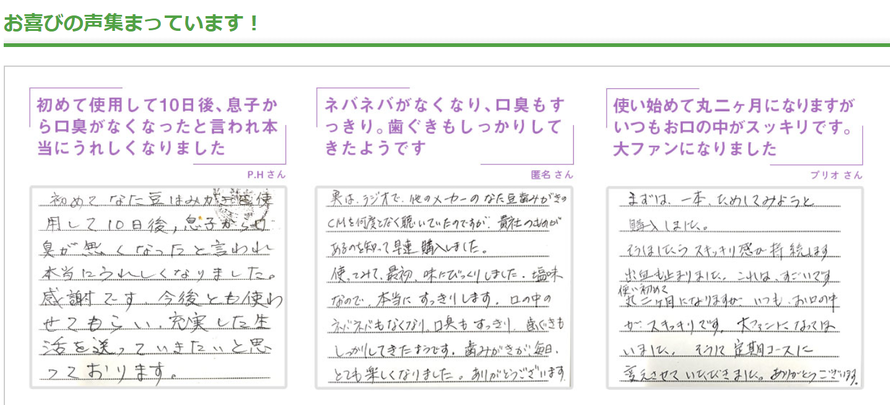 お喜びの声集まっています！
初めて使用して10日後、息子か
ら口臭がなくなったと言われ本
当にうれしくなりました
P.H さん
初めて なた豆はみがき 使
用して10日後,息子から口
臭が無くなったと言われ
本当にうれしくなりました。
感謝です。今後とも使わ
せてもらい、充実した生
活を送っていきたいと思
っております。
ネバネバがなくなり、口臭もす
っきり。歯ぐきもしっかりして
きたようです
匿名 さん
実は、ラジオで、他のメーカーのなた豆歯みがきの
CMを何度となく聴いていたのですが、貴社のものが
あるのを知って早速購入しました。
使ってみて、最初、味にびっくりしました。塩味
なので、本当にすっきりします。口の中の
ネバネバもなくなり、口臭もすっきり。歯ぐきも
しっかりしてきたようです。歯みがきが、毎日、
とても楽しくなりました。ありがとうございます。
使い始めて丸二ヶ月になりますが
いつもお口の中がスッキリです。
大ファンになりました
ブリオ さん
まずは、一本、ためしてみようと
購入しました。
そうしましたら スッキリ感が持続します
出血も止まりました。これは、すごいです
使い初めて
丸二ヶ月になりますが、いつも、お口の中
が、スッキリです。大ファンになってしま
いました。そうして定期コースに
変えさせていただきました。ありがとうございます。